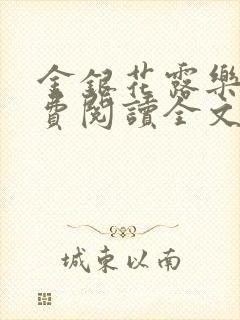 金銀花露樂
費閱讀全文
城東以南